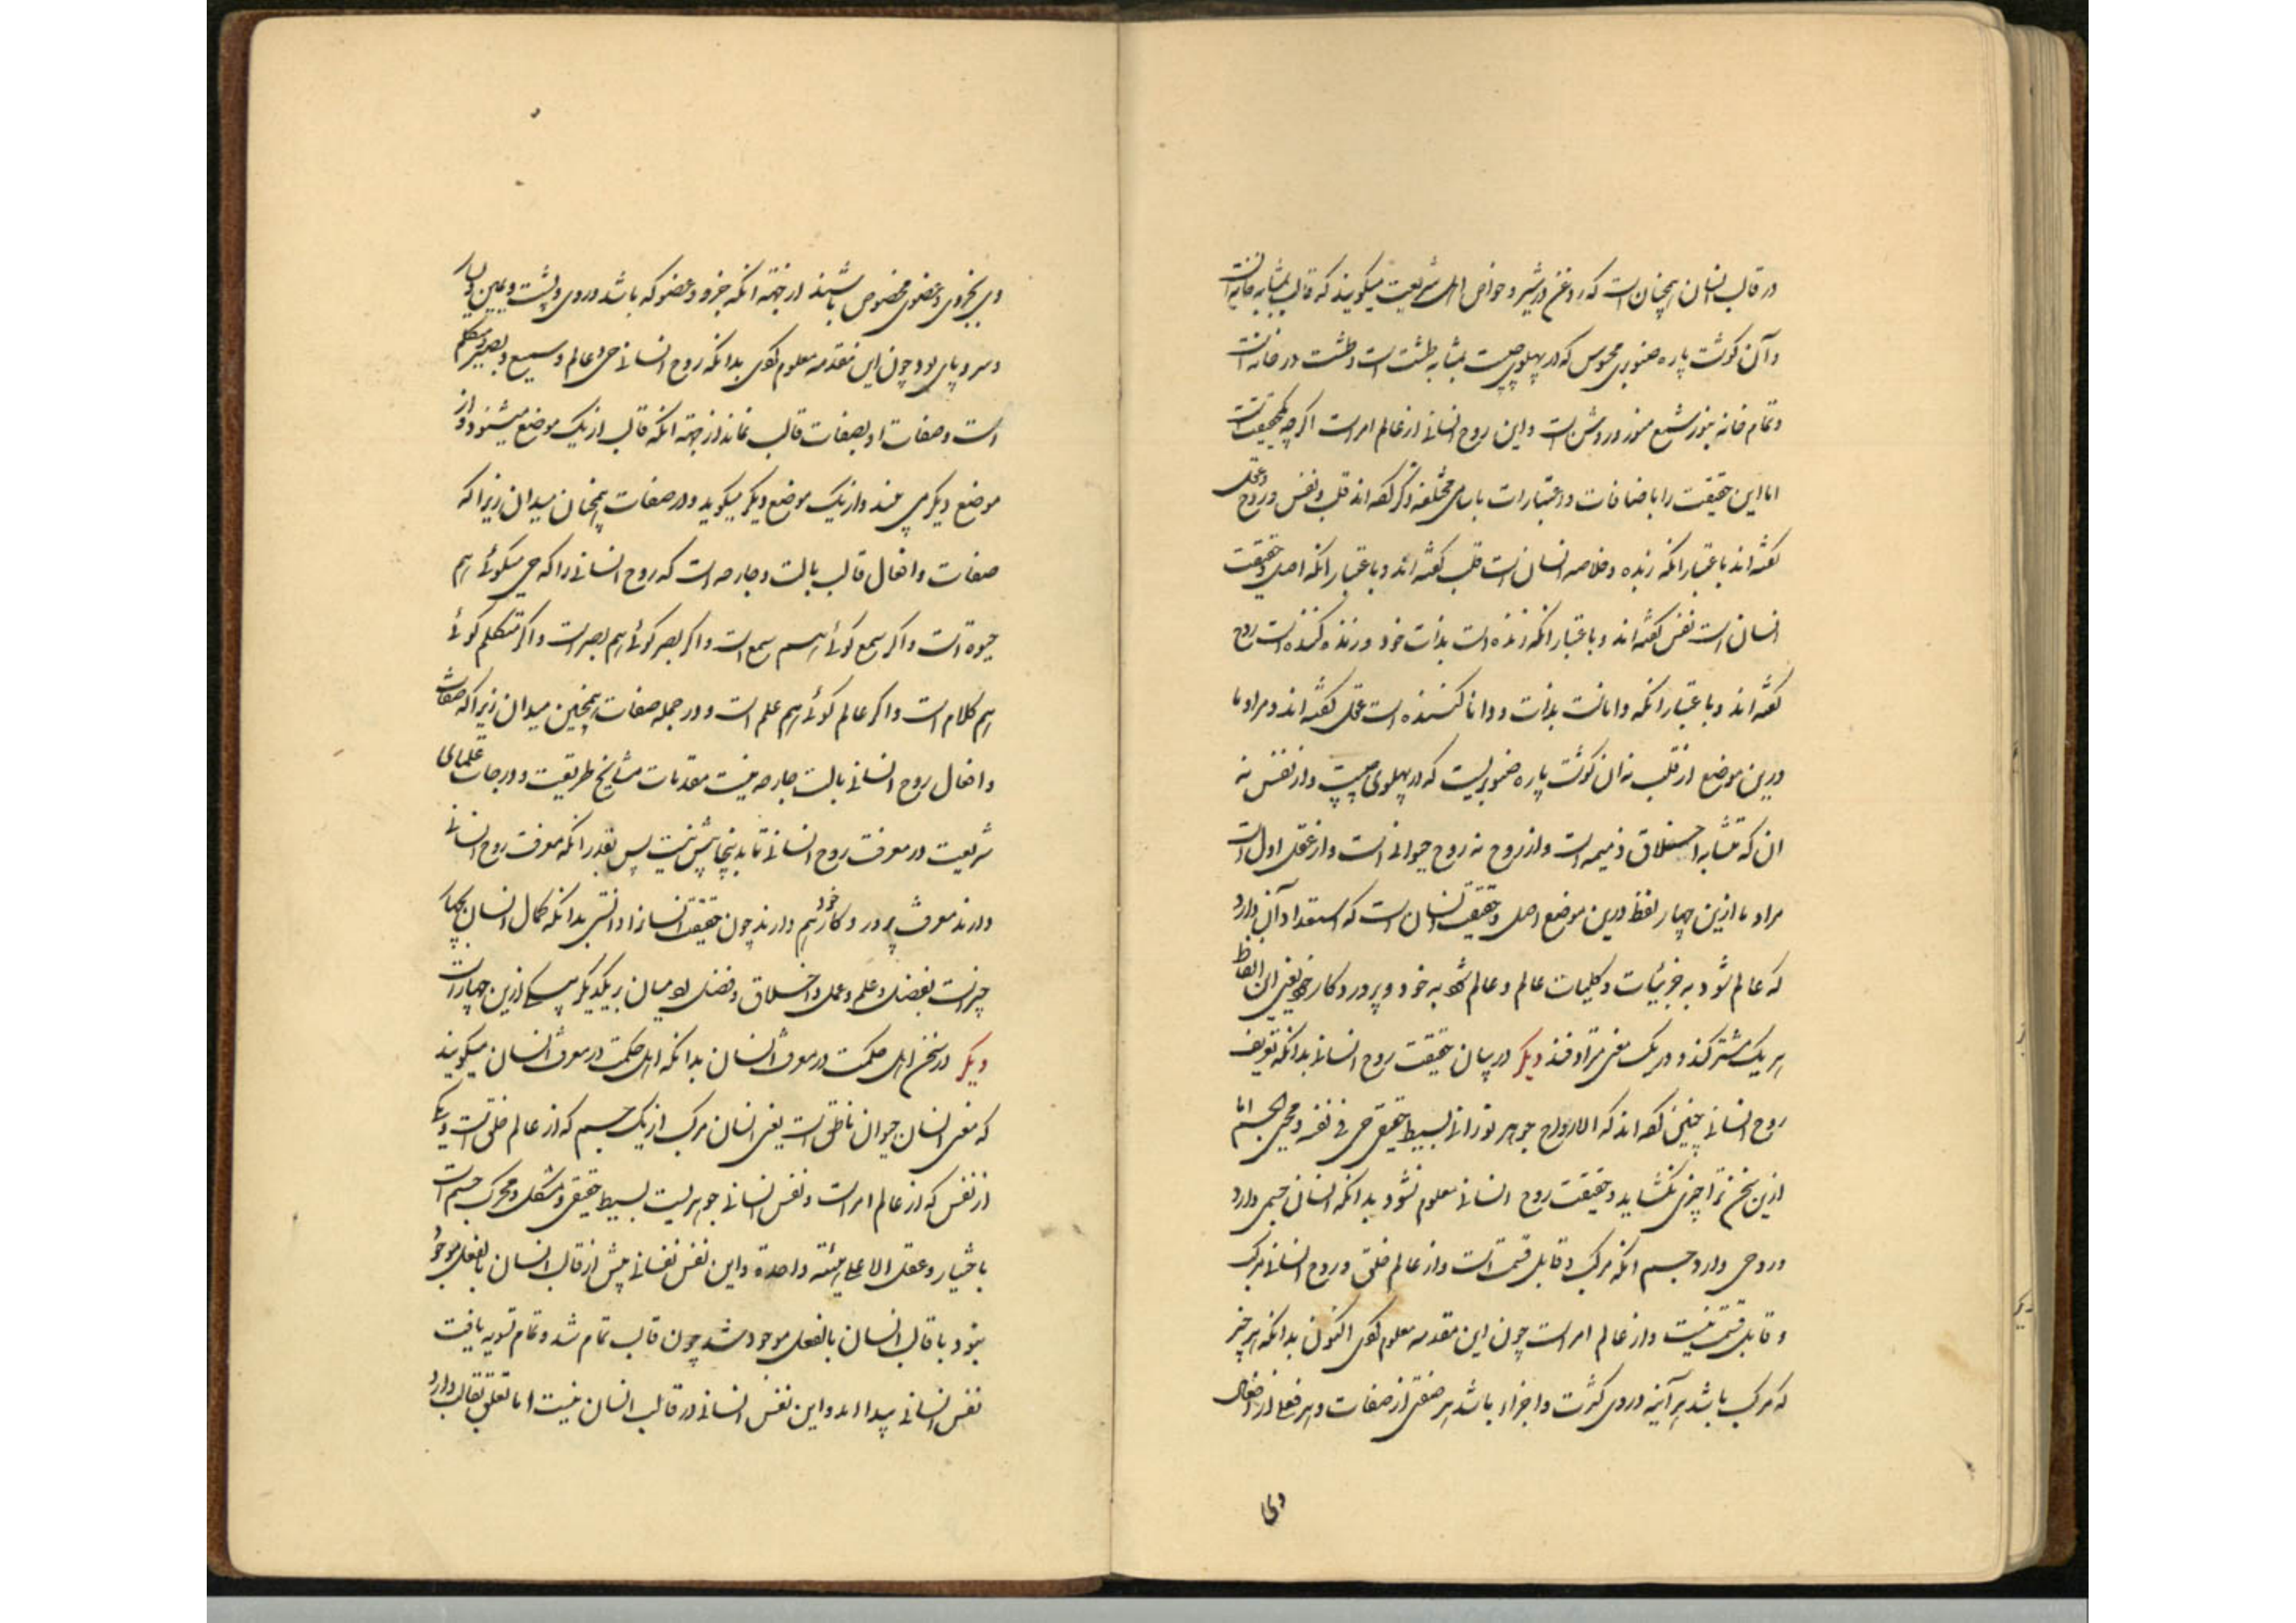 در قالب انسان همچنان است که روغن در شیر و خواص اهل شریعت میگویند که قالب بمثابه خانه است
و آن گوشت پاره صنوبری محسوس که در پهلوی چپ است بمثابه طشت است و طشت در خانه است
و تمام خانه بنور شمع منور و روشن است و این روح انسانی از عالم امر است اگرچه یکحقیقت است
اما این حقیقت را باضافات و اعتبارات باسامی مختلفه ذکر کرده‌اند قلب و نفس و روح و عقل
گفته‌اند باعتبار آنکه زبده و خلاصه انسان است قلب گفته‌اند و باعتبار آنکه اصل و حقیقت
انسان است نفس گفته‌اند و باعتبار آنکه زنده است بذات خود و زنده کننده است روح
گفته‌اند و باعتبار آنکه دانا است بذات و دانا کننده است عقل گفته‌اند و مراد ما
درین موضع از قلب نه آن گوشت پاره صنوبریست که در پهلوی چپ و از نفس نه
آن که متشابه اخلاق ذمیمه است و از روح نه روح حیوانی است و از عقل اول است
مراد ما ازین چهار لفظ درین موضع اصل و حقیقت انسان است که استعداد آن دارد
که عالم شود به جزئیات و کلیات عالم و عالم شود به خود و پروردگار خود یعنی این الفاظ
هر یک مشترکند و در یک معنی مترادفند دیگر در بیان حقیقت روح انسانی بدانکه تعریف
روح انسانی چنین کرده‌اند که الارواح جوهر نورانی بسیط حقیقی حی فی نفسه و محیی الجسم اما
ازین سخن ترا چیزی نگشاید و حقیقت روح انسانی معلوم نشود بدانکه انسان جسمی دارد
و روحی دارد جسم آنکه مرکب و قابل قسمت است و از عالم خلق و روح انسانی مرکب
و قابل قسمت نیست و از عالم امر است چون این مقدمه معلوم کردی اکنون بدانکه هر چیز
که مرکب باشد هر آینه در وی کثرت و اجزاء باشد هر صفتی از صفات و هر فعلی از افعال
وی
وی بجزوی و عضوی مخصوص باشند از جهة آنکه جزو و عضو که باشد در وی و پشت و یمین و یسار
و سر و پای بود چون این مقدمه معلوم کردی بدانکه روح انسانی حی و عالم و سمیع و بصیر و متکلم
است و صفات او بصفات قالب نماند از جهة آنکه قالب از یک موضع میشنود و از
موضع دیگر می‌بیند و از یک موضع دیگر میگوید و در صفات همچنان میدان زیرا که
صفات و افعال قالب بآلت و جارحه است که روح انسانی را که حی میگوئی هم
حیوة است و اگر سمع گوئی هم سمع است و اگر بصر گوئی هم بصر است و اگر متکلم گوئی
هم کلام است و اگر عالم گوئی هم علم است و در جمله صفات همچنین میدان زیرا که صفات
و افعال روح انسانی بآلت جارحه نیست مقدمات مشایخ طریقت و درجات علمای
شریعت در معرفت روح انسانی تا بدینجا بیش نیست پس بقدر آنکه معرفت روح انسانی
دارند معرفت پروردگار خود هم دارند چون حقیقت انسان را دانستی بدانکه کمال انسان بچهار
چیز است بفضل و علم و عمل و اخلاق و فضل آدمیان بر یکدیگر ازین چهار است
دیگر در سخن اهل حکمت در معرفت انسان بدانکه اهل حکمت در معرفت انسان میگویند
که معنی انسان حیوان ناطق است یعنی انسان مرکب از یک جسم که از عالم خلق است و یک
از نفس که از عالم امر است و نفس انسانی جوهریست بسیط حقیقی و مشکل و محرک جسم است
باختیار و عقل الا علی هیئته واحدة و این نفس نفسانی پیش از قالب انسان بالفعل موجود
نبود با قالب انسان بالفعل موجود شد چون قالب تمام شد و تمام تسویه یافت
نفس انسانی پیدا آمد و این نفس انسانی در قالب انسان نیست اما تعلق بقالب دارد